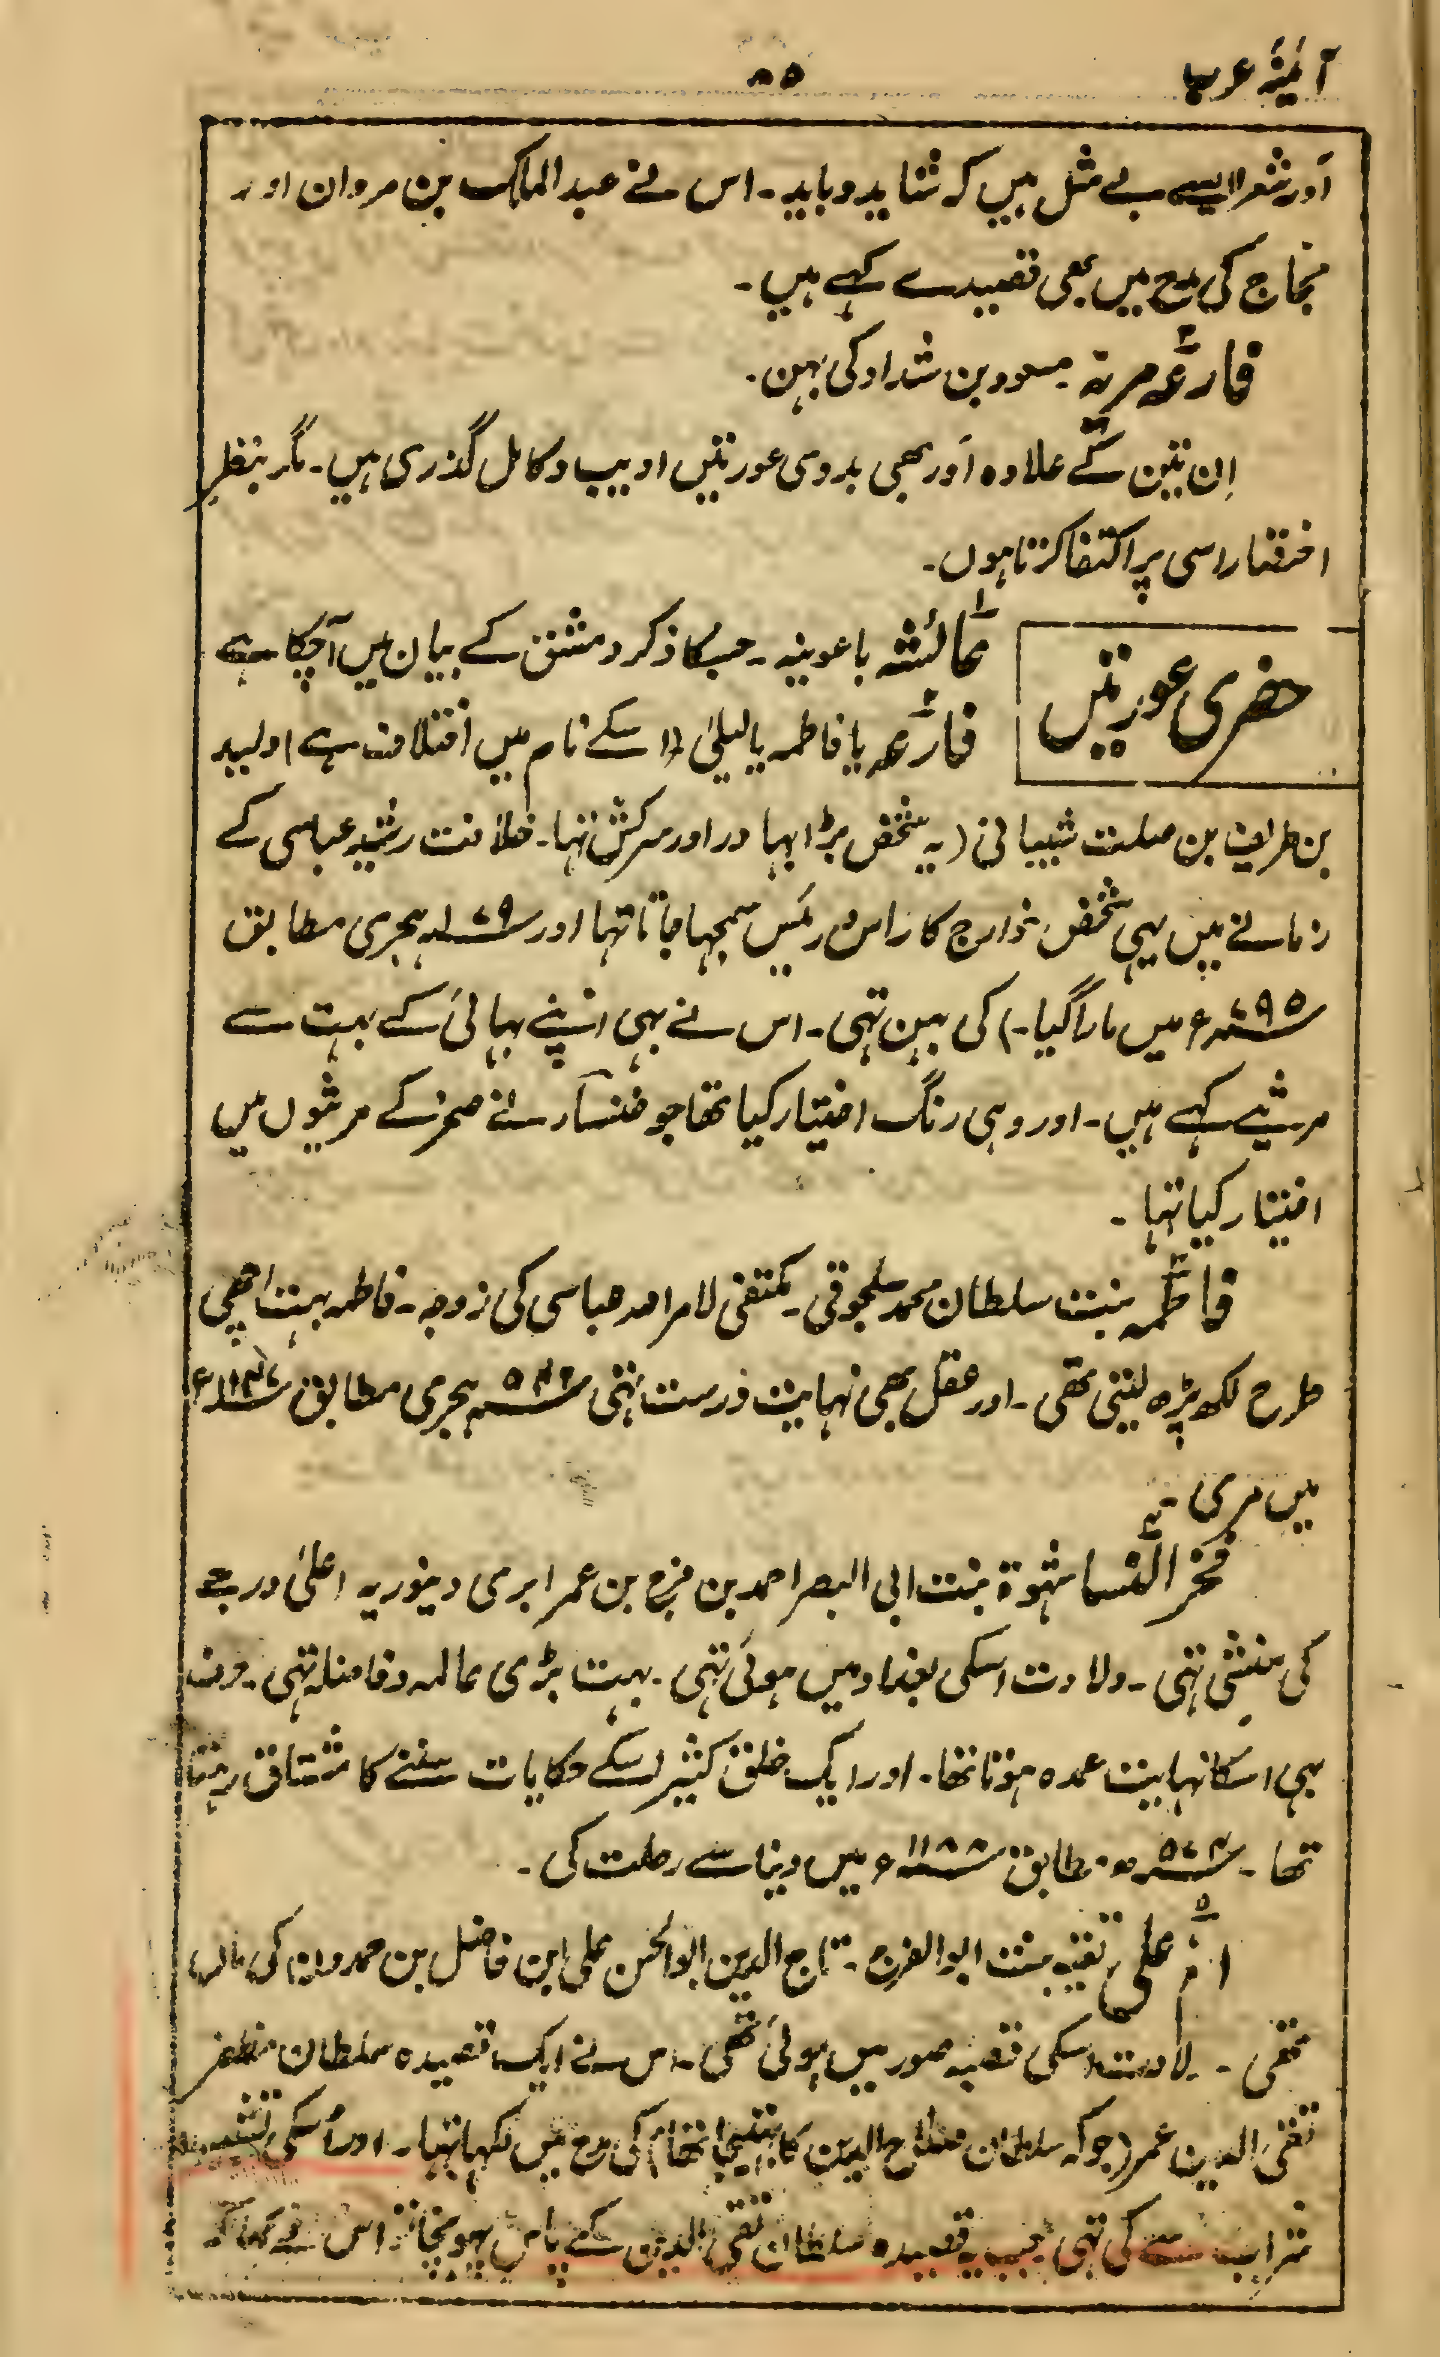 آئینۂ عرب
۸۵
اَور شعر ایسے بے مثل ہیں کہ شاید و باید ۔ اس نے عبد الملک بن مروان اور
حجاج کی مدح میں بھی قصیدے کہے ہیں ۔
فارعہ مریہ مسعود بن شداد کی بہن ۔
اِن تین کے علاوہ اَور بھی بدوی عورتیں ادیب و کامل گذری ہیں ۔ مگر بنظرِ
اختصار اسی پر اکتفا کرتا ہوں ۔
حضری عورتیں
عائشہ باعونیہ ۔ جسکا ذکر دمشق کے بیان میں آچکا ہے
فارعہ یا فاطمہ یا لیلیٰ (اسکے نام میں اختلاف ہے) ولید
بن طریف بن صلت شیبانی (یہ شخص بڑا بہادر اور سرکش تہا ۔ خلافت رشید عباسی کے
زمانے میں یہی شخص خوارج کا راس و رئیس سمجہا جاتا تہا اور ۱۷۹ ہجری مطابق
۷۹۵ء میں مارا گیا ۔) کی بہن تہی ۔ اس نے بہی اپنے بہائی کے بہت سے
مرثیے کہے ہیں ۔ اور وہی رنگ اختیار کیا تھا جو خنساء نے صخر کے مرثیوں میں
اختیار کیا تہا ۔
فاطمہ بنت سلطان محمد سلجوقی ۔ مکتفی لامر اللہ عباسی کی زوجہ ۔ فاطمہ بہت اچھی
طرح لکھ پڑھ لیتی تھی ۔ اور عقل بھی نہایت درست تہی ۵۴۲ ہجری مطابق ۱۱۴۷ء
میں مری ۔
فخر النسا شہدۃ بنت ابی النصر احمد بن فرج بن عمر ابری دینوریہ اعلیٰ درجے
کی منشی تہی ۔ ولادت اسکی بغداد میں ہوئی تہی ۔ بہت بڑی عالمہ و فاضلہ تہی ۔
بہی اسکا نہایت عمدہ ہوتا تھا ۔ اور ایک خلق کثیر اسکے حکایات سننے کا مشتاق رہتا
تھا ۔ ۵۷۴ھ مطابق ۱۱۸۸ء میں دنیا سے رحلت کی ۔
ام علی تقیہ بنت ابو الفرج ۔ تاج الدین ابو الحسن علی ابن فاضل بن حمدون کی ماں
تھی ۔ ولادت اسکی قصبہ صور میں ہوئی تھی ۔ اس نے ایک قصیدہ سلطان مظفر
تقی الدین عمر (جو کہ سلطان صلاح الدین کا بھتیجا تھا) کی مدح میں لکہا تہا ۔ اور اُسکی تشبیب
شراب سے کی تہی جب یہ قصیدہ سلطان تقی الدین کے پاس پہونچا تو اس نے کہا کہ